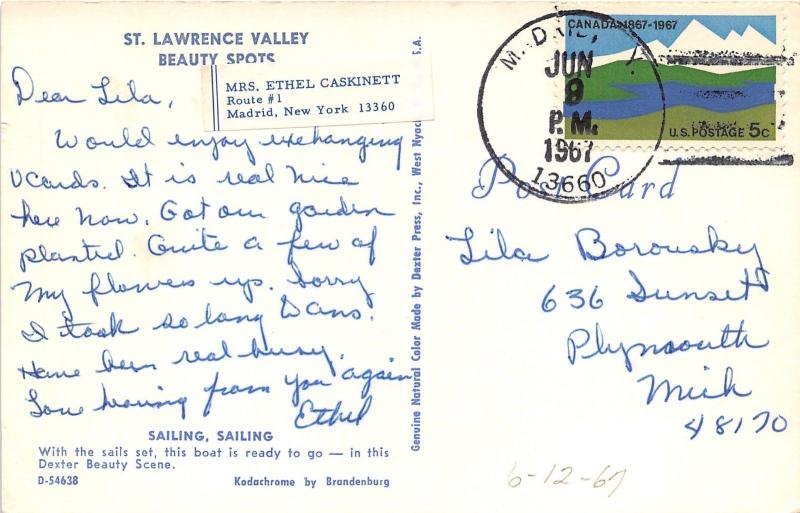 ST. LAWRENCE VALLEY
BEAUTY SPOTS
MRS. ETHEL CASKINETT
Route #1
Madrid, New York 13360
Dear Lila,
Would enjoy exchanging
V Cards. It is real nice
here now. Got our garden
planted. Quite a few of
my flowers up. Sorry
I took so long to ans.
Have been real busy.
Love hearing from you again
Ethel
SAILING, SAILING
With the sails set, this boat is ready to go — in this
Dexter Beauty Scene.
D-54638 Kodachrome by Brandenburg
Genuine Natural Color Made by Dexter Press, Inc., West Nyack
S.A.
CANADA 1867-1967
U.S. POSTAGE 5c
JUN
9
P.M.
1967
13660
Post Card
Lila Borousky
636 Sunset
Plymouth
Mich
48170
6-12-67